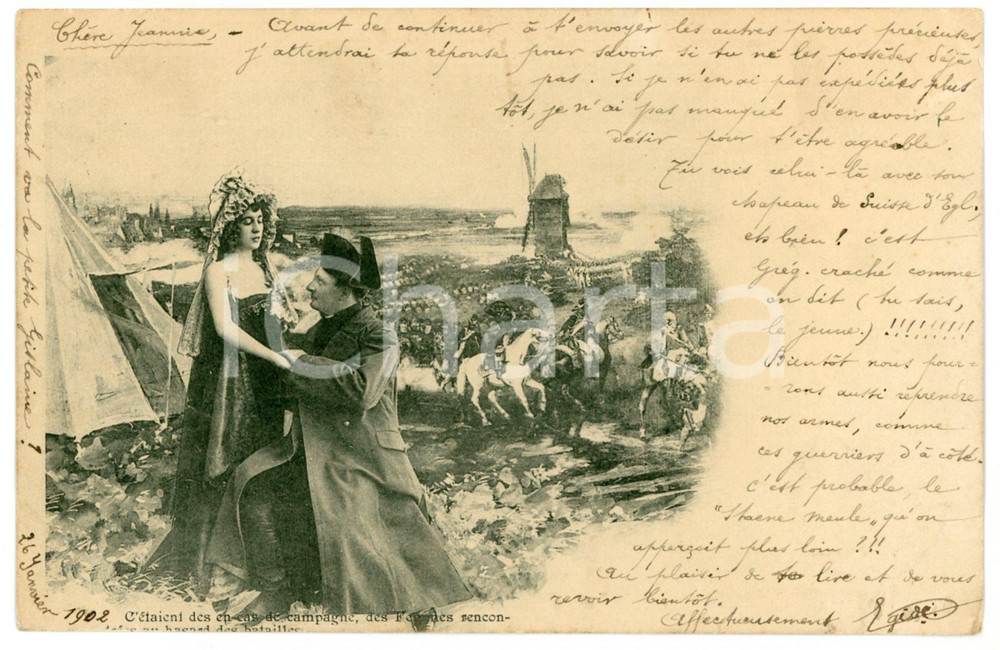 Chère Jeannie, - Avant de continuer à t'envoyer les autres pierres précieuses,
j'attendrai ta réponse pour savoir si tu ne les possèdes déjà
pas. Si je n'en ai pas expédiées plus
tôt, je n'ai pas manqué d'en avoir le
désir pour t'être agréable.
Tu vois celui-là avec son
chapeau de Suisse d'Egl.,
eh bien! c'est
Grég. craché comme
on dit (tu sais,
le jeune.) !!!!!!!!!
Bientôt nous pour=
=rons aussi reprendre
nos armes, comme
ces guerriers d'à côté.
C'est probable, le
"Steene meule" qu'on
apperçoit plus loin ?!!
Au plaisir de te lire et de vous
revoir bientôt.
Affectueusement
Comment va la petite Gislaine ?
26 Janvier 1902
C'étaient des en-cas de campagne, des Femmes rencon-
trées au hasard des batailles
iCharta